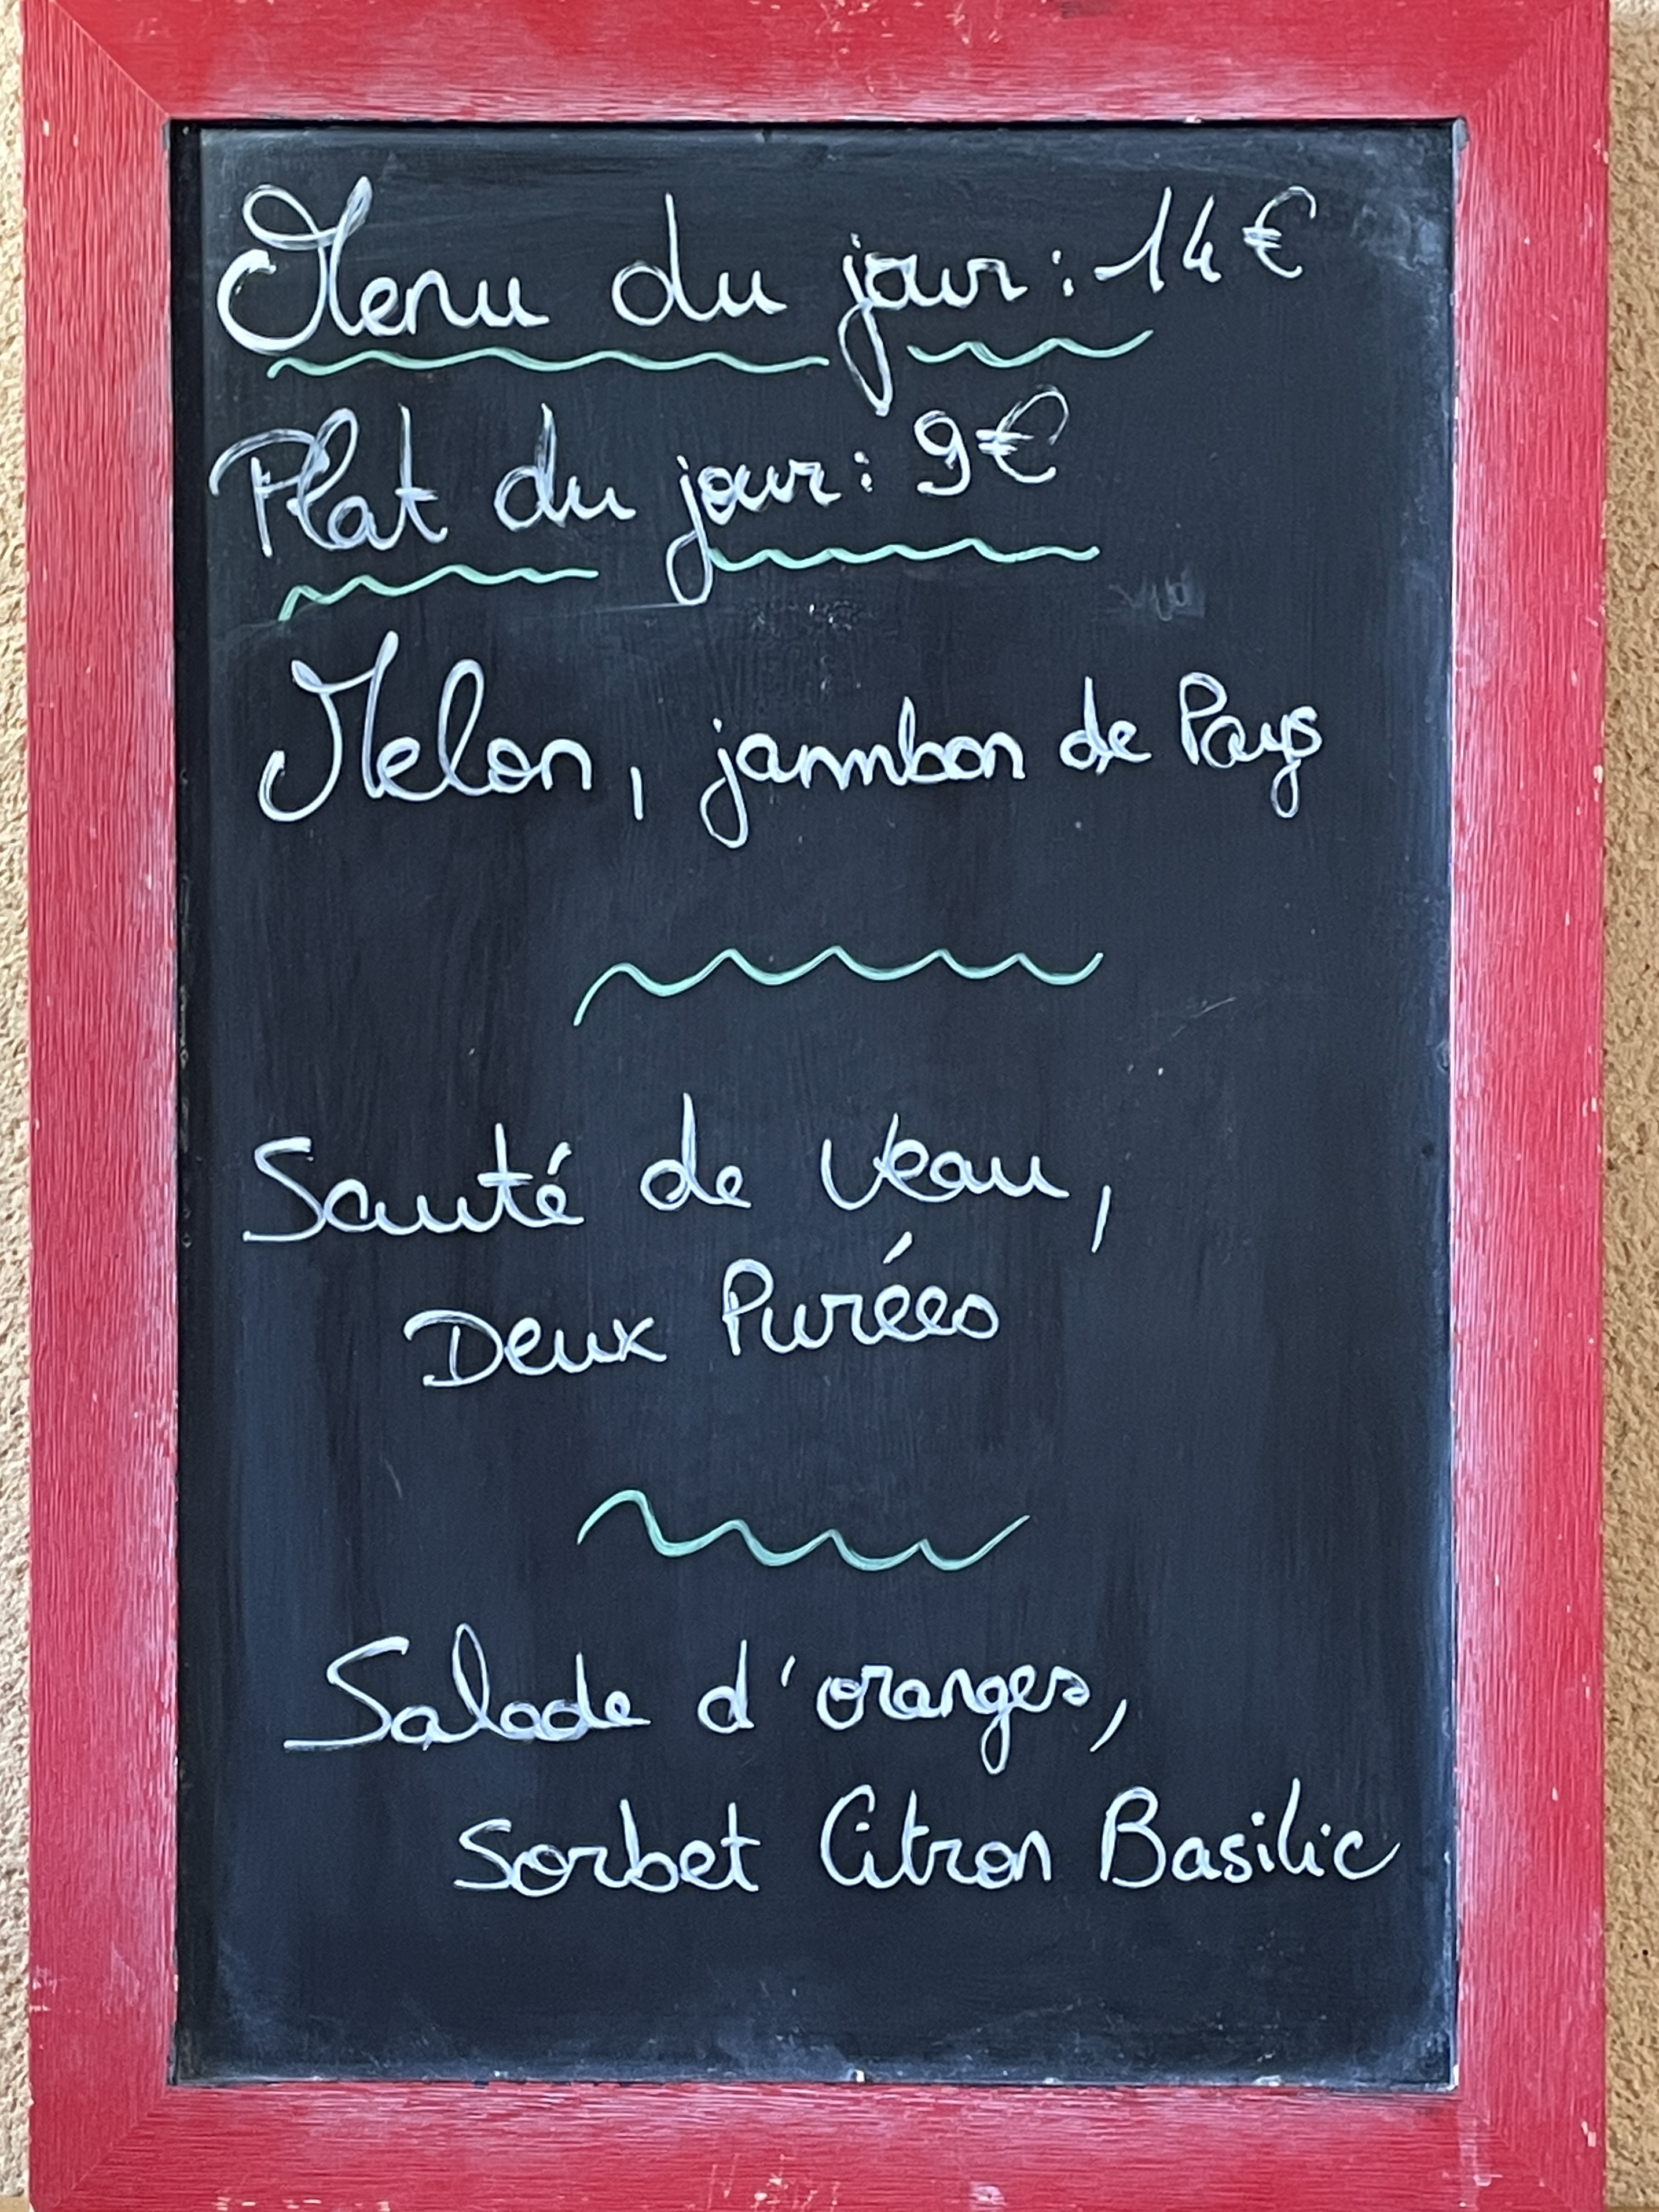 Menu du jour : 14€
Plat du jour : 9€
Melon, jambon de Pays
Sauté de Veau,
Deux Purées
Salade d'oranges,
Sorbet Citron Basilic